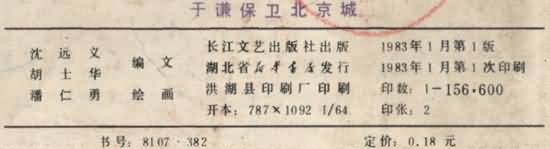 于谦保卫北京城
沈远义 编文
胡士华
潘仁勇 绘画
长江文艺出版社出版
湖北省新华书店发行
洪湖县印刷厂印刷
开本：787×1092 1/64
1983年1月第1版
1983年1月第1次印刷
印数：1—156·600
印张：2
书号：8107·382
定价：0.18元